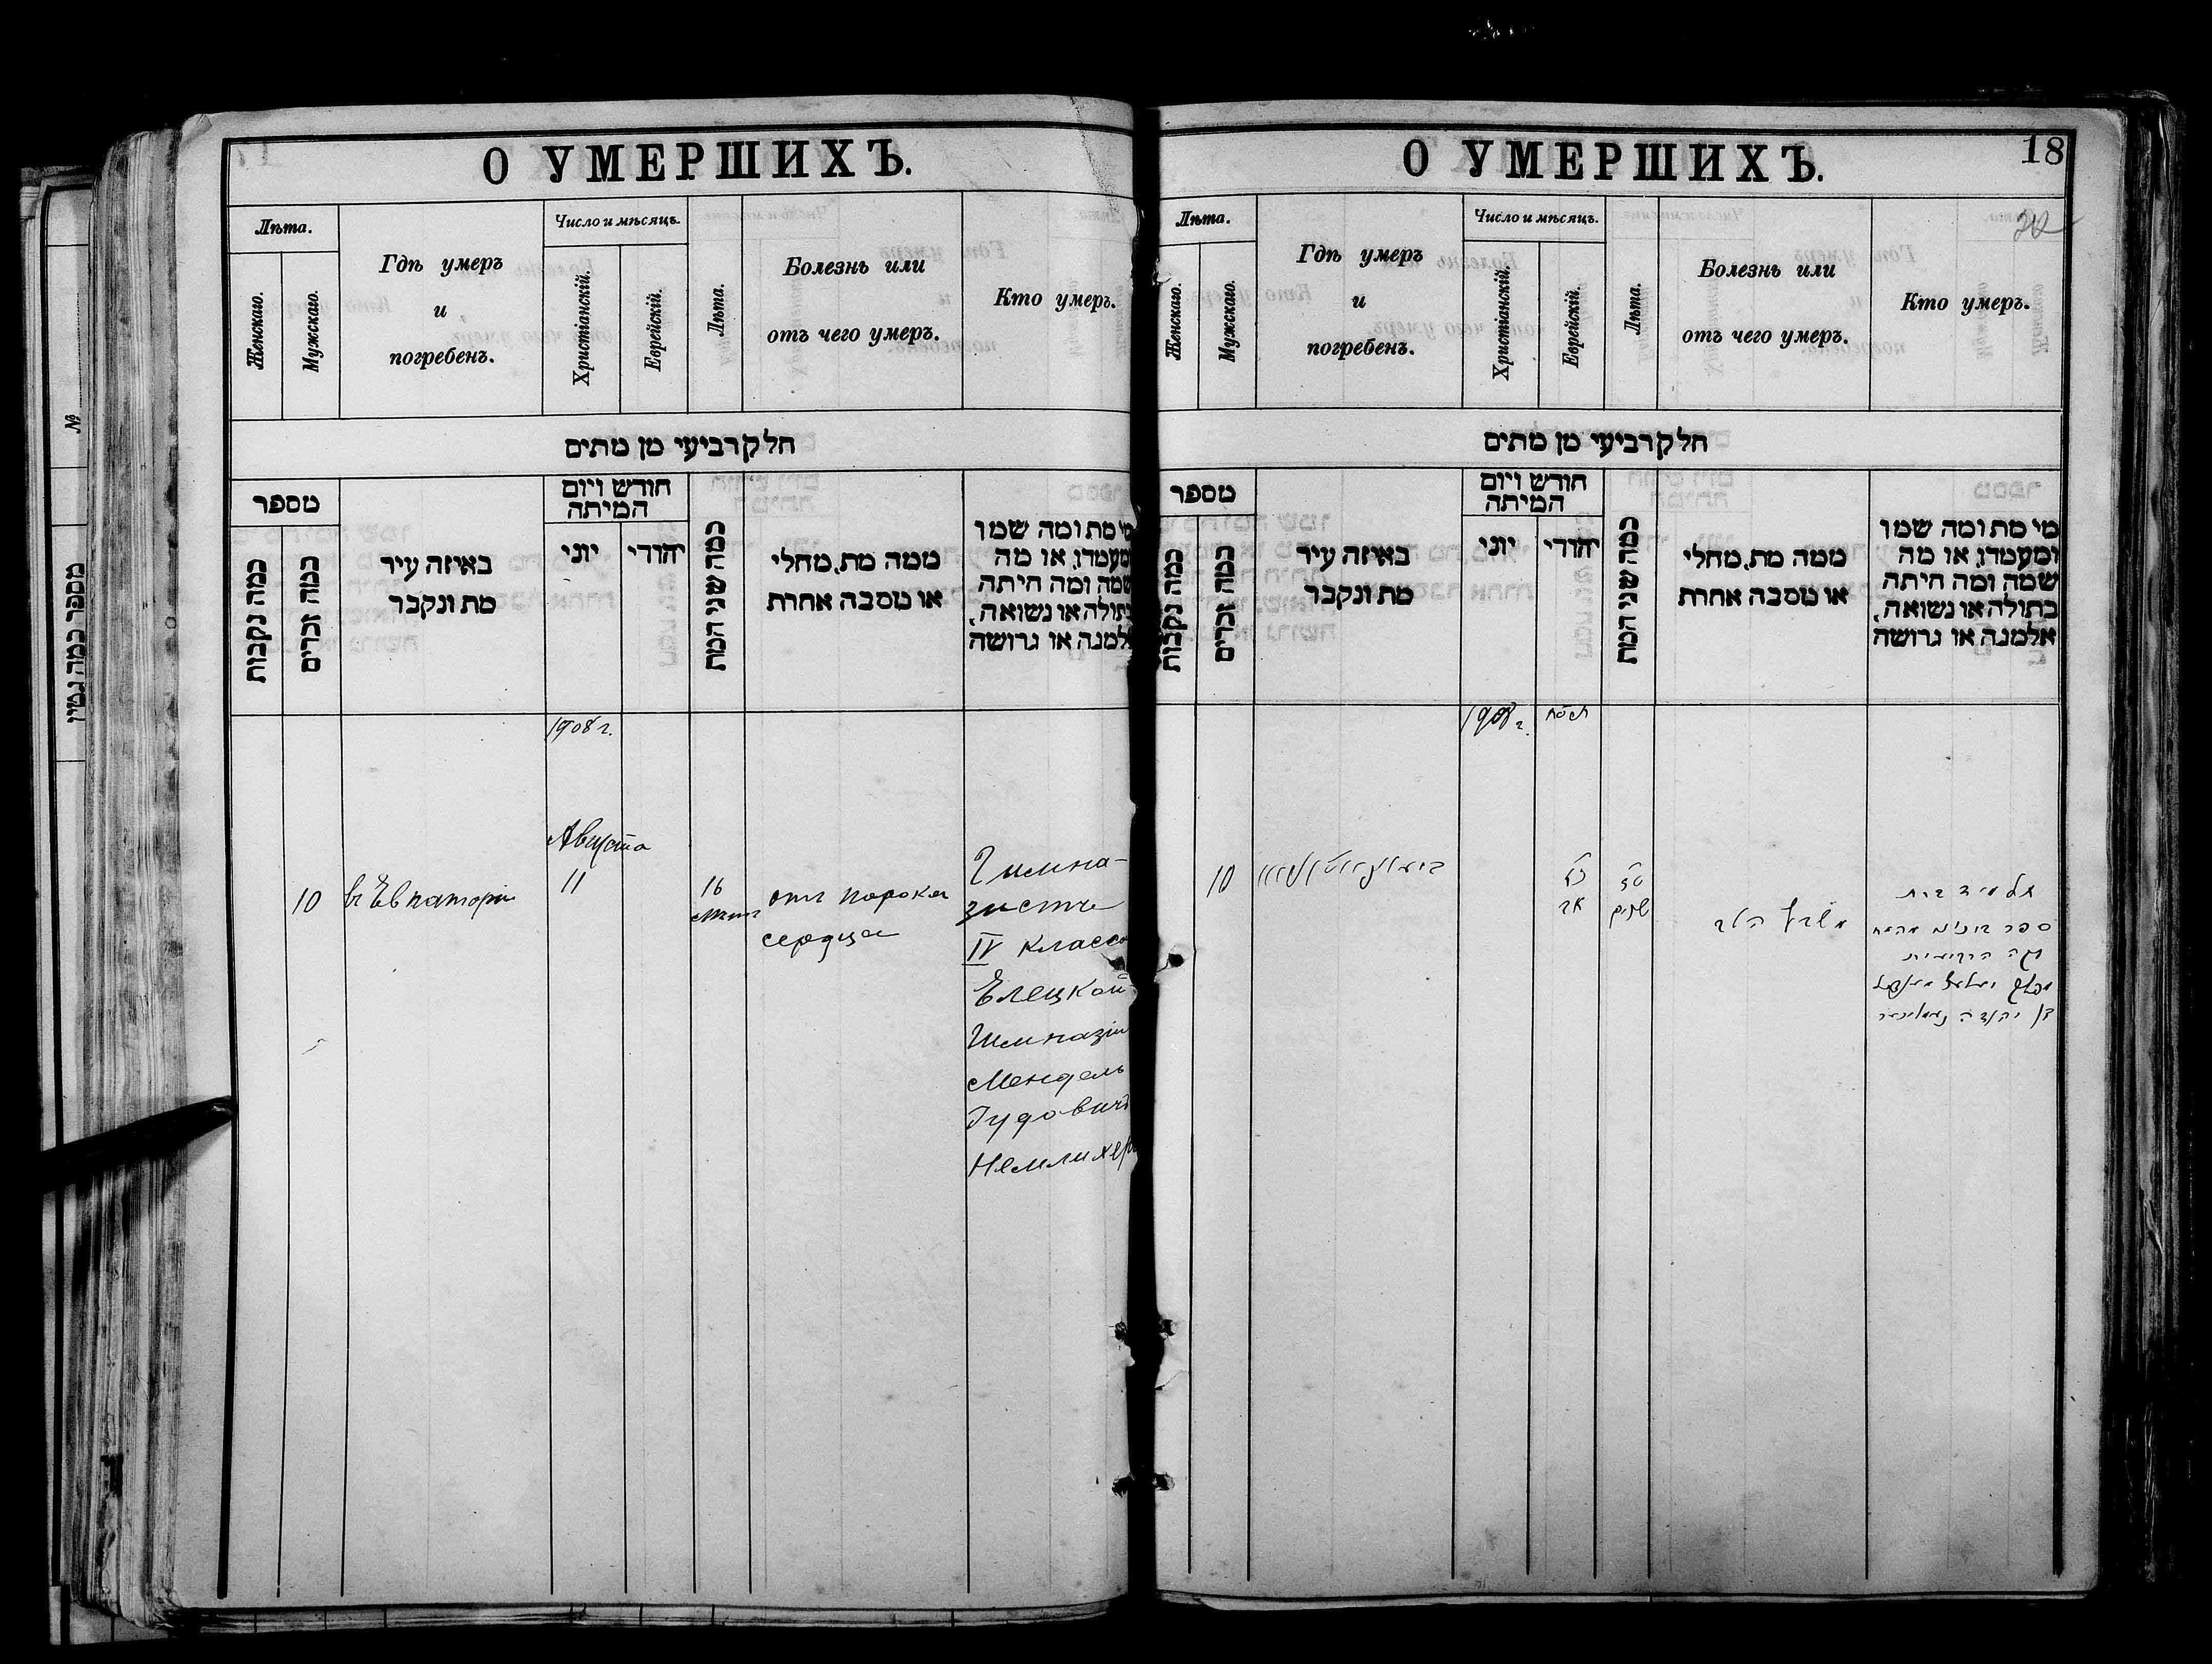 О УМЕРШИХЪ.
Лѣта.
Женскаго.
Мужскаго.
Гдѣ умеръ
и
погребенъ.
Число и мѣсяцъ.
Христіанскій.
Еврейскій.
Лѣта.
Болезнь или
отъ чего умеръ.
Кто умеръ.
חלק רביעי מן מתים
מספר
כמה נקבות
כמה זכרים
באיזה עיר
מת ונקבר
חודש ויום
המיתה
יוני
יהודי
כמה שני המת
ממה מת, מחלי
או מסבה אחרת
מי מת ומה שמו
ומעמדו, או מה
שמה ומה היתה
בתולה או נשואה,
אלמנה או גרושה
1908 г.
Августа
11
10
въ Евпаторіи
16
лѣтъ
отъ порока
сердца
Гимна-
зистъ
IV класса
Елецкой
Гимназіи
Мендель
Іудовичъ
Немлихеръ
№
מספר כמה גטין
О УМЕРШИХЪ.
18
Лѣта.
Женскаго.
Мужскаго.
Гдѣ умеръ
и
погребенъ.
Число и мѣсяцъ.
Христіанскій.
Еврейскій.
Лѣта.
Болезнь или
отъ чего умеръ.
Кто умеръ.
חלק רביעי מן מתים
מספר
כמה נקבות
כמה זכרים
באיזה עיר
מת ונקבר
חודש ויום
המיתה
יוני
יהודי
כמה שני המת
ממה מת, מחלי
או מסבה אחרת
מי מת ומה שמו
ומעמדו, או מה
שמה ומה היתה
בתולה או נשואה,
אלמנה או גרושה
1908 г.
10
אב
שנים
הלב
תלמיד בית
ספר
בן יהודה